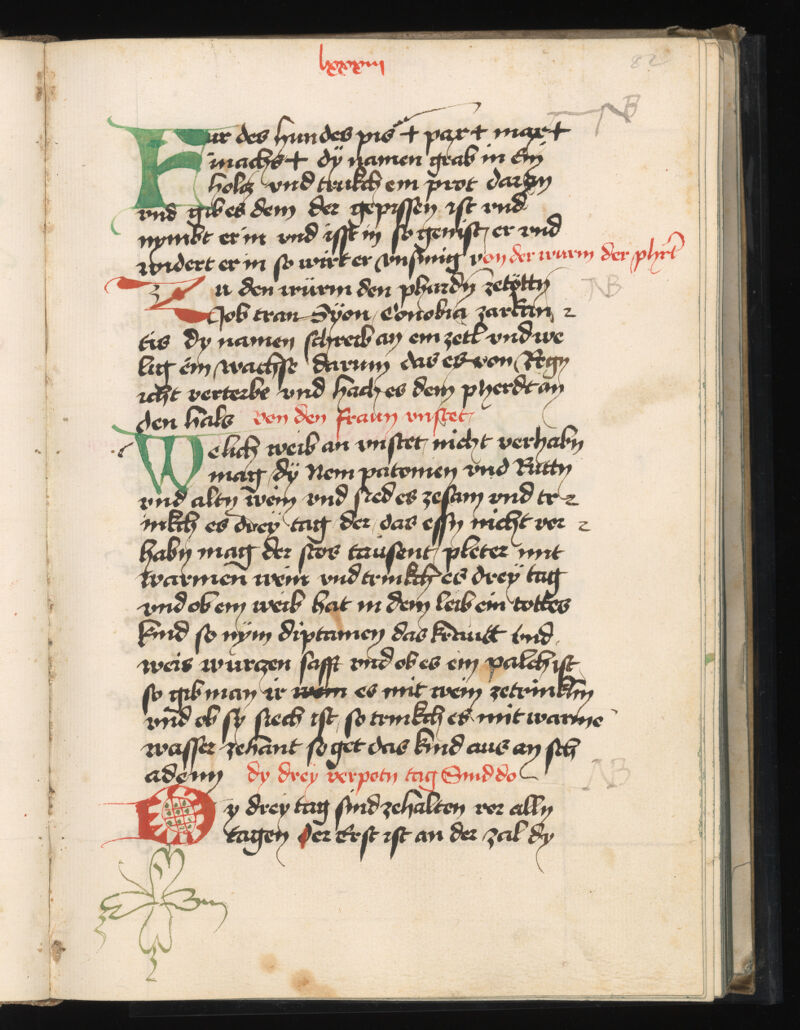 lxxxiii
82
NB
Fur des hundes pis + par + max +
machs + dÿ namen grab in ein
holcz vnd trukch ein prot daran
vnd gib es dem der gepissen ist vnd
nymbt er in vnd isst in so genist er vnd
widert er in so wirt er vnsinnig von der wurm der phert
NB
Zu den würm den phardn zetöttn
Job tran Syon Conobia zarkan
tis dy namen schreib an ein zetl vnd we
lig ein wachse darum das es von Regn
icht verterbe vnd hach es dem pherdt an
den hals von den frawn vnstet
Welich weib an vnstet nicht verhabn
mag dÿ Nem patomen vnd Ruttn
vnd altn wein vnd sied es zesam vnd tr
inkch es dreÿ tag der das essn nicht ver
habn mag der stos tausent pleter mit
warmen wein vnd trinkch es dreÿ tag
vnd ob ein weib hat in dem leib ein tottes
kind so nÿm diptamen das krautt vnd
weis wurczen safft vnd ob es ein palch ist
so gib man ir es mit wein zetrinkhn
vnd ob sy siech ist so trinkch es mit warme
wasser zehant so get das kind aus an sch
adenn dy dreÿ verpotn tag Sind do
NB
Dy dreÿ tag sind zehalten vor alln
tagen Der Erst ist an der zal dy